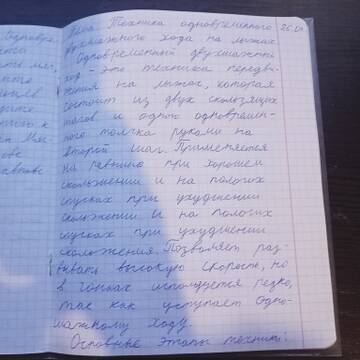 Одновре-
Тема: Техника одновременного 26.01
двухшажного хода на лыжах
Одновременный двухшажный
ход - это техника передви-
жения на лыжах, которая
состоит из двух скользящих
шагов и одного одновремен-
ного толчка руками на
второй шаг. Применяется
на равнине при хорошем
скольжении и на пологих
спусках при ухудшении
скольжении и на пологих
спусках при ухудшении
скольжения. Позволяет раз-
вивать высокую скорость, но
в гонках используется редко,
так как уступает одно-
шажному ходу.
Основные этапы техники: